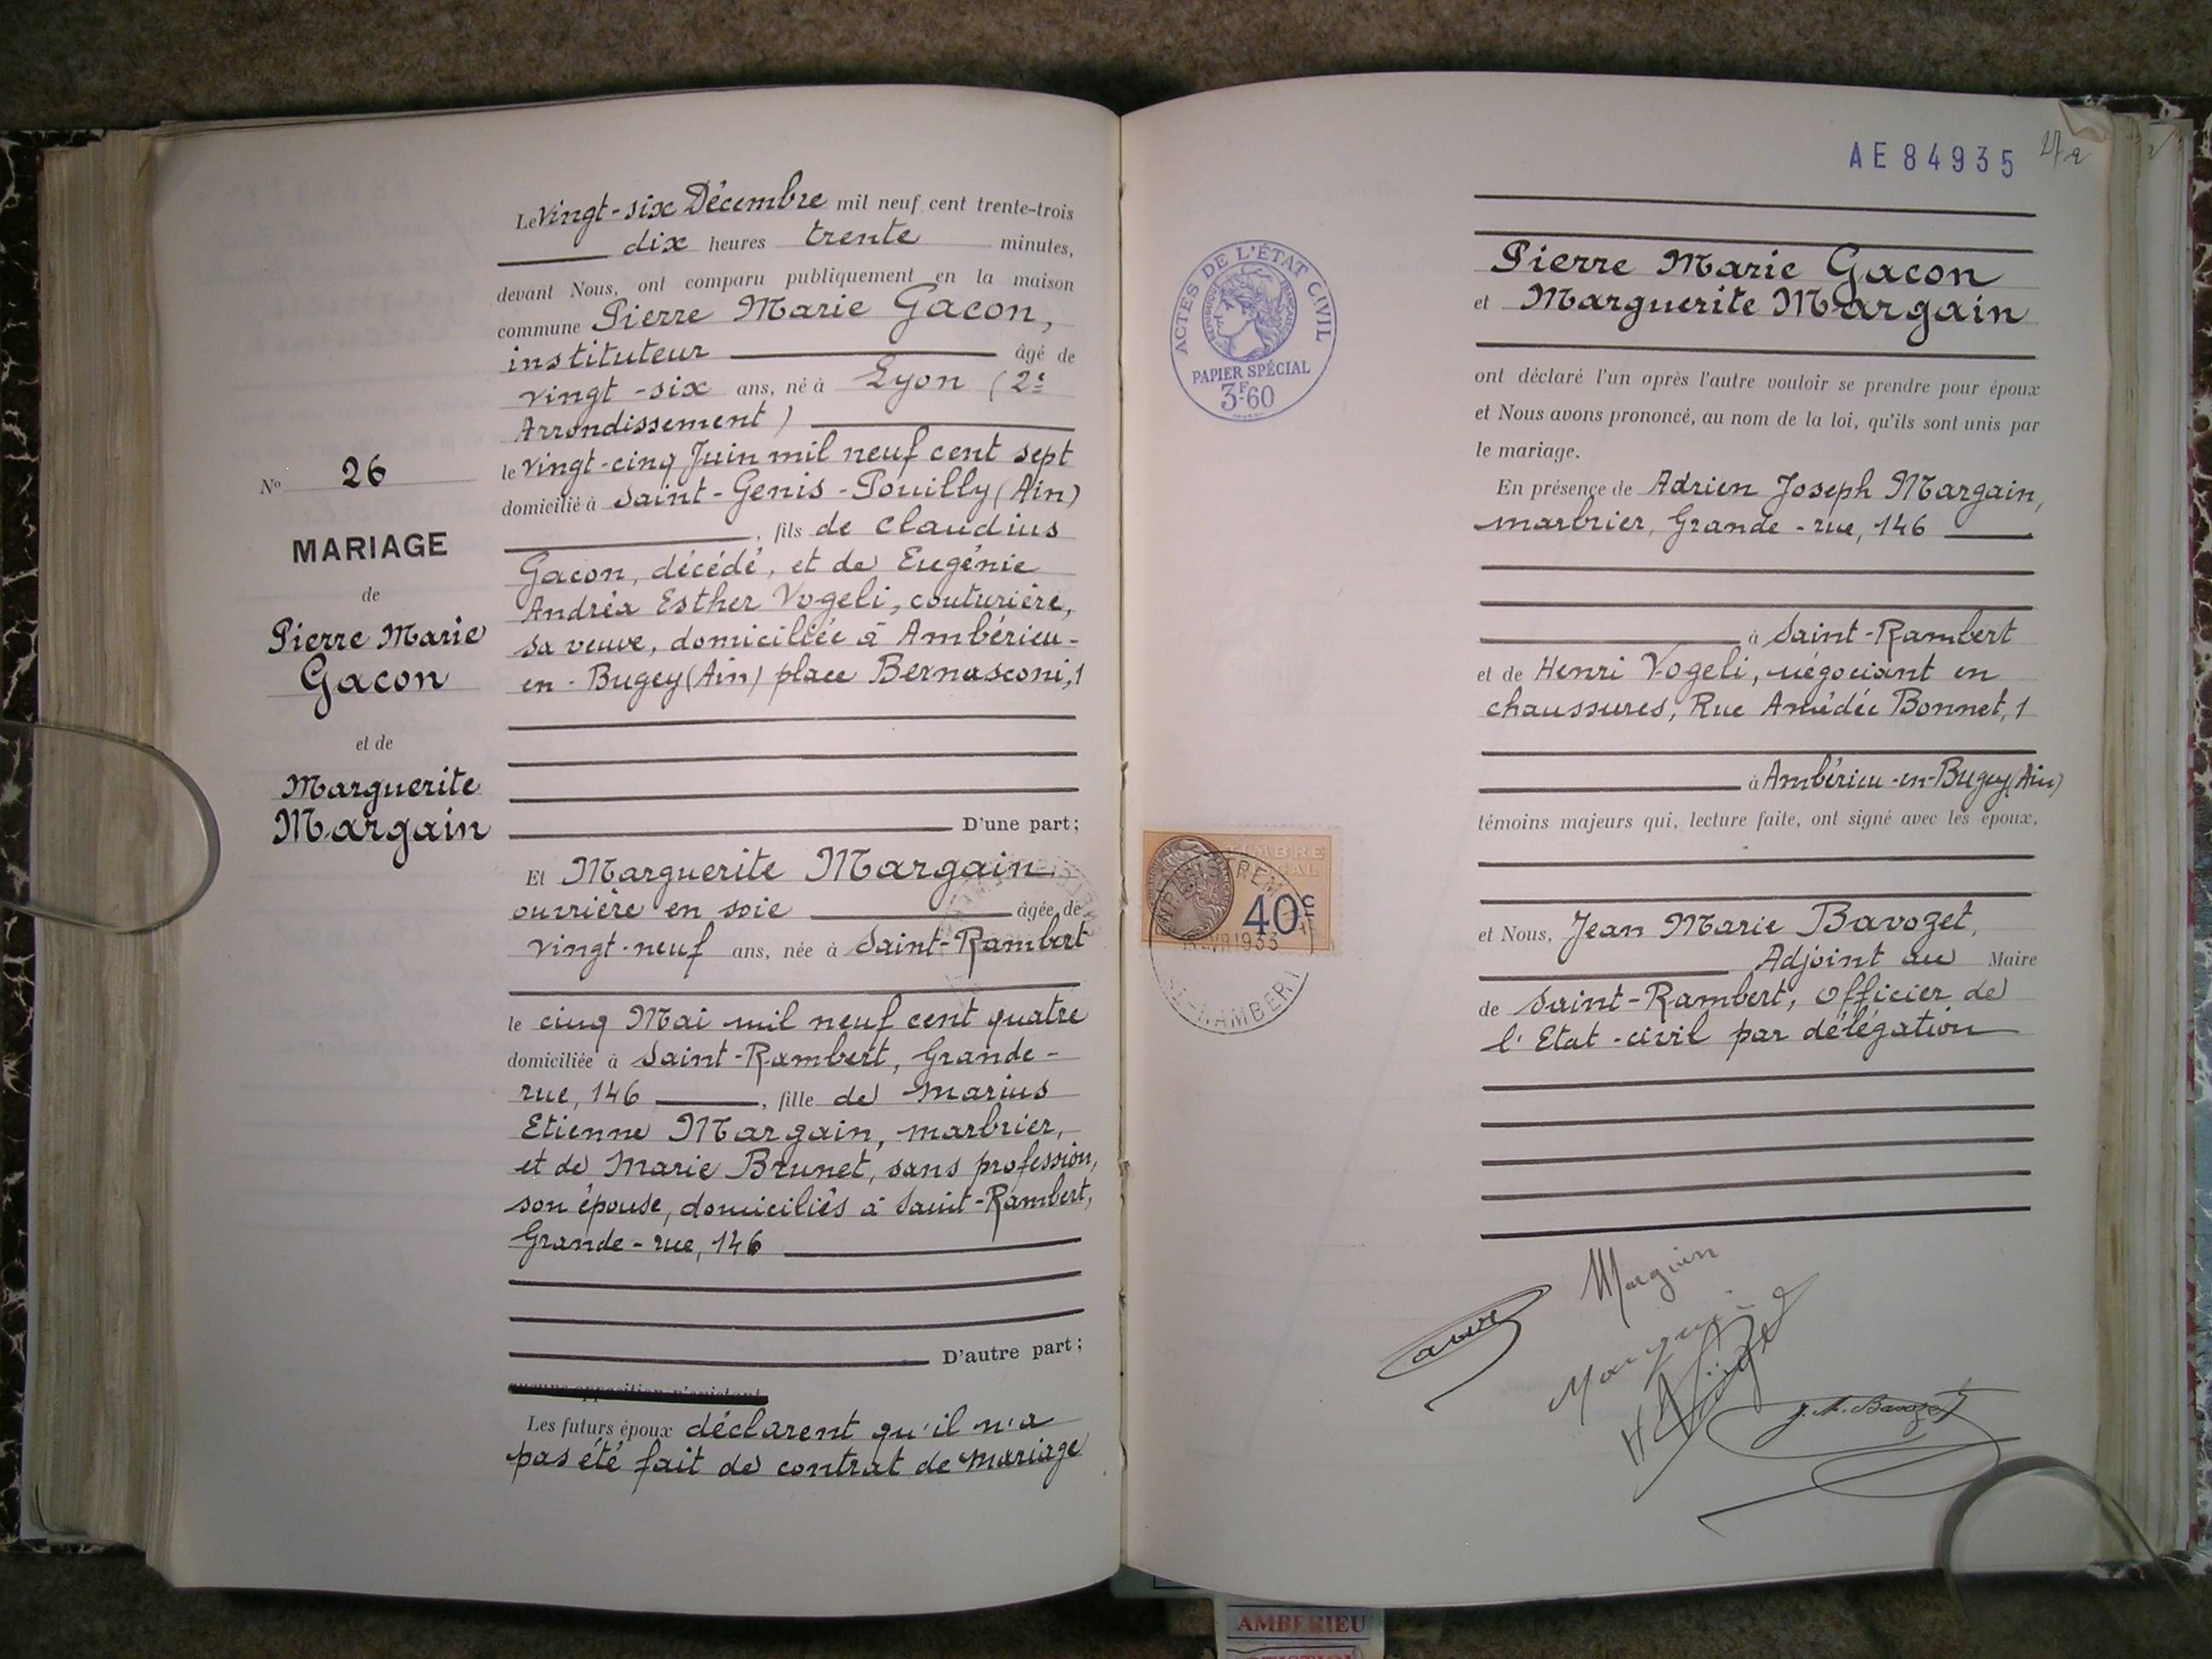 Le vingt-six Décembre mil neuf cent trente-trois
dix heures trente minutes,
devant Nous, ont comparu publiquement en la maison
commune Pierre Marie Gacon,
instituteur âgé de
vingt-six ans, né à Lyon (2e
Arrondissement)
le vingt-cinq Juin mil neuf cent sept
domicilié à Saint-Genis-Pouilly (Ain)
, fils de Claudius
Gacon, décédé, et de Eugénie
Andréa Esther Vogeli, couturière,
sa veuve, domiciliée à Ambérieu-
en-Bugey (Ain) place Bernasconi, 1
D'une part;
No 26
MARIAGE
de
Pierre Marie
Gacon
et de
Marguerite
Margain
Et Marguerite Margain
ouvrière en soie âgée de
vingt-neuf ans, née à Saint-Rambert
le cinq Mai mil neuf cent quatre
domiciliée à Saint-Rambert, Grande-
rue, 146, fille de Marius
Etienne Margain, marbrier,
et de Marie Brunet, sans profession,
son épouse, domiciliés à Saint-Rambert,
Grande-rue, 146
D'autre part;
Les futurs époux déclarent qu'il n'a
pas été fait de contrat de mariage
AE84935
ACTES DE L'ÉTAT CIVIL
RÉPUBLIQUE FRANÇAISE
PAPIER SPÉCIAL
3F60
Pierre Marie Gacon
et Marguerite Margain
ont déclaré l'un après l'autre vouloir se prendre pour époux
et Nous avons prononcé, au nom de la loi, qu'ils sont unis par
le mariage.
En présence de Adrien Joseph Margain,
marbrier, Grande-rue, 146
à Saint-Rambert
et de Henri Vogeli, négociant en
chaussures, Rue Amédée Bonnet, 1
à Ambérieu-en-Bugey (Ain)
témoins majeurs qui, lecture faite, ont signé avec les époux,
TIMBRE
FISCAL
40c
1933
St-RAMBERT
et Nous, Jean Marie Bavozet,
Adjoint au Maire
de Saint-Rambert, Officier de
l'Etat-civil par délégation
Margain
J. M. Bavozet
AMBERIEU